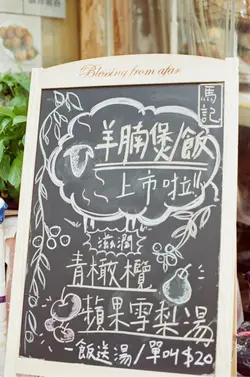 Blosing from afar
馬記
羊腩煲飯
上市啦!!
滋潤
青橄欖
蘋果雪梨湯
一飯送湯/單叫$20